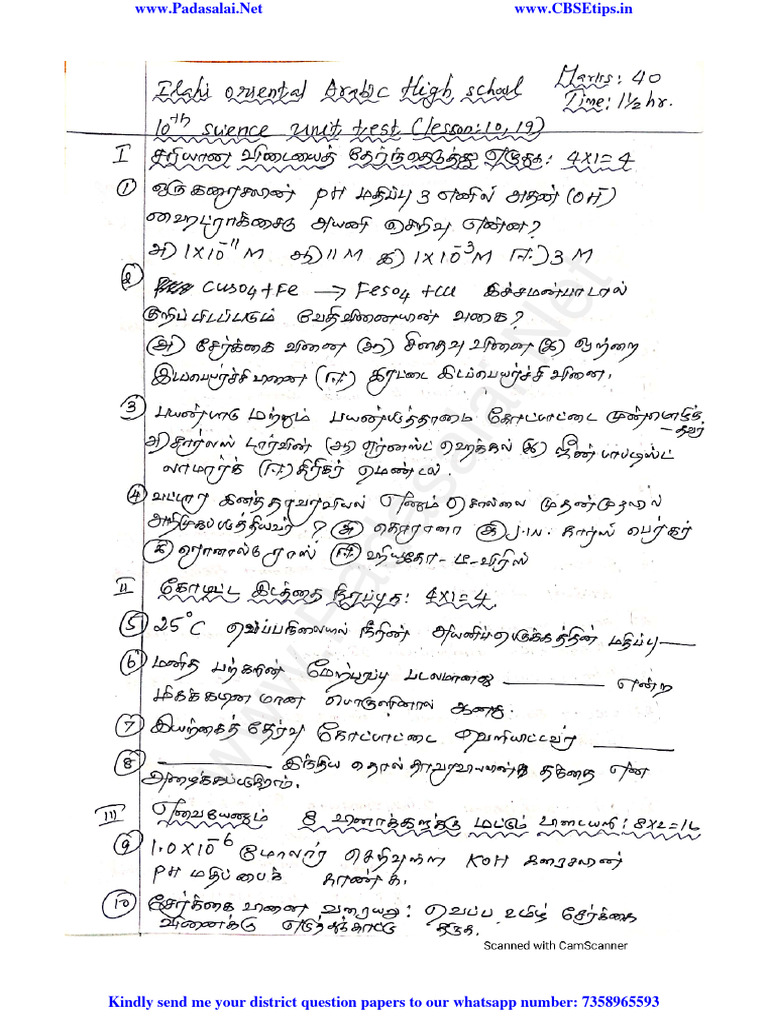 www.Padasalai.Net www.CBSEtips.in
Ilahi oriental Arabic High school Marks: 40
Time: 1½ hr.
10th science unit test (lesson: 10, 19)
I சரியான விடையைத் தேர்ந்தெடுத்து எழுதுக: 4x1=4
① ஒரு கரைசலின் pH மதிப்பு 3 எனில் அதன் (OH⁻)
ஹைட்ராக்சைடு அயனி செறிவு என்ன?
அ) 1x10⁻¹¹ M ஆ) 11 M இ) 1x10⁻³ M ஈ) 3 M
② CuSO4 + Fe → FeSO4 + Cu இச்சமன்பாடால்
குறிப்பிடப்படும் வேதிவினையின் வகை?
(அ) சேர்க்கை வினை (ஆ) சிதைவு வினை (இ) ஒற்றை
இடப்பெயர்ச்சி வினை (ஈ) இரட்டை இடப்பெயர்ச்சி வினை.
③ பயன்பாடு மற்றும் பயன்படுத்தாமை கோட்பாட்டை முன்மொழிந்
-தவர்
அ) சார்லஸ் டார்வின் (ஆ) எர்னஸ்ட் ஹெக்கல் (இ) ஜீன் பாப்டிஸ்ட்
லாமார்க் (ஈ) கிரிகர் மெண்டல்.
④ வட்டார இனத்தாவரவியல் எனும் சொல்லை முதன்முதலில்
அறிமுகப்படுத்தியவர்? (அ) கொரானா (ஆ) J.W. கார்ஸ் பெர்கர்
(இ) ரொனால்டு ராஸ் (ஈ) ஹியுகோ-டி-விரிஸ்
II கோடிட்ட இடத்தை நிரப்புக: 4x1=4
⑤ 25°C வெப்பநிலையில் நீரின் அயனிப்பெருக்கத்தின் மதிப்பு ___
⑥ மனித பற்களின் மேற்பரப்பு படலமானது ________ என்ற
மிகக்கடினமான பொருளினால் ஆனது.
⑦ இயற்கைத் தேர்வு கோட்பாட்டை வெளியிட்டவர் ______
⑧ ________ இந்திய தொல் தாவரவியலின் தந்தை என
அழைக்கப்படுகிறார்.
III எவையேனும் 8 வினாக்களுக்கு மட்டும் விடையளி: 8x2=16
⑨ 1.0x10⁻⁶ மோலார் செறிவுள்ள KOH கரைசலின்
PH மதிப்பைக் காண்க.
⑩ சேர்க்கை வினை வரையறு: வெப்ப உமிழ் சேர்க்கை
வினைக்கு எடுத்துக்காட்டு தருக.
Scanned with CamScanner
www.Padasalai.Net
Kindly send me your district question papers to our whatsapp number: 7358965593